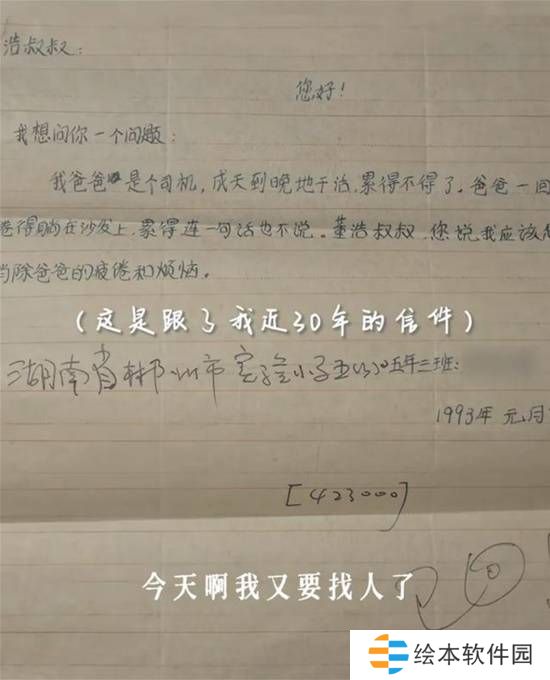 浩叔叔：
您好！
我想问你一个问题：
我爸爸是个司机，成天到晚地干活，累得不得了。爸爸一回
卷得躺在沙发上，累得连一句话也不说。董浩叔叔，您说我应该怎
当除爸爸的疲倦和烦恼。
（这是跟了我近30年的信件）
湖南省郴州市实验小学五年三班：
1993年 元月
[423000]
今天啊我又要找人了
绘本软件园